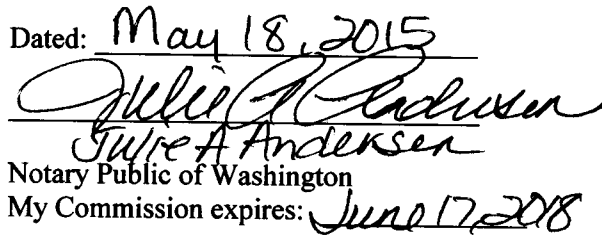 Dated: May 18, 2015
Julie A Andersen
Julie A Andersen
Notary Public of Washington
My Commission expires: June 17, 2018